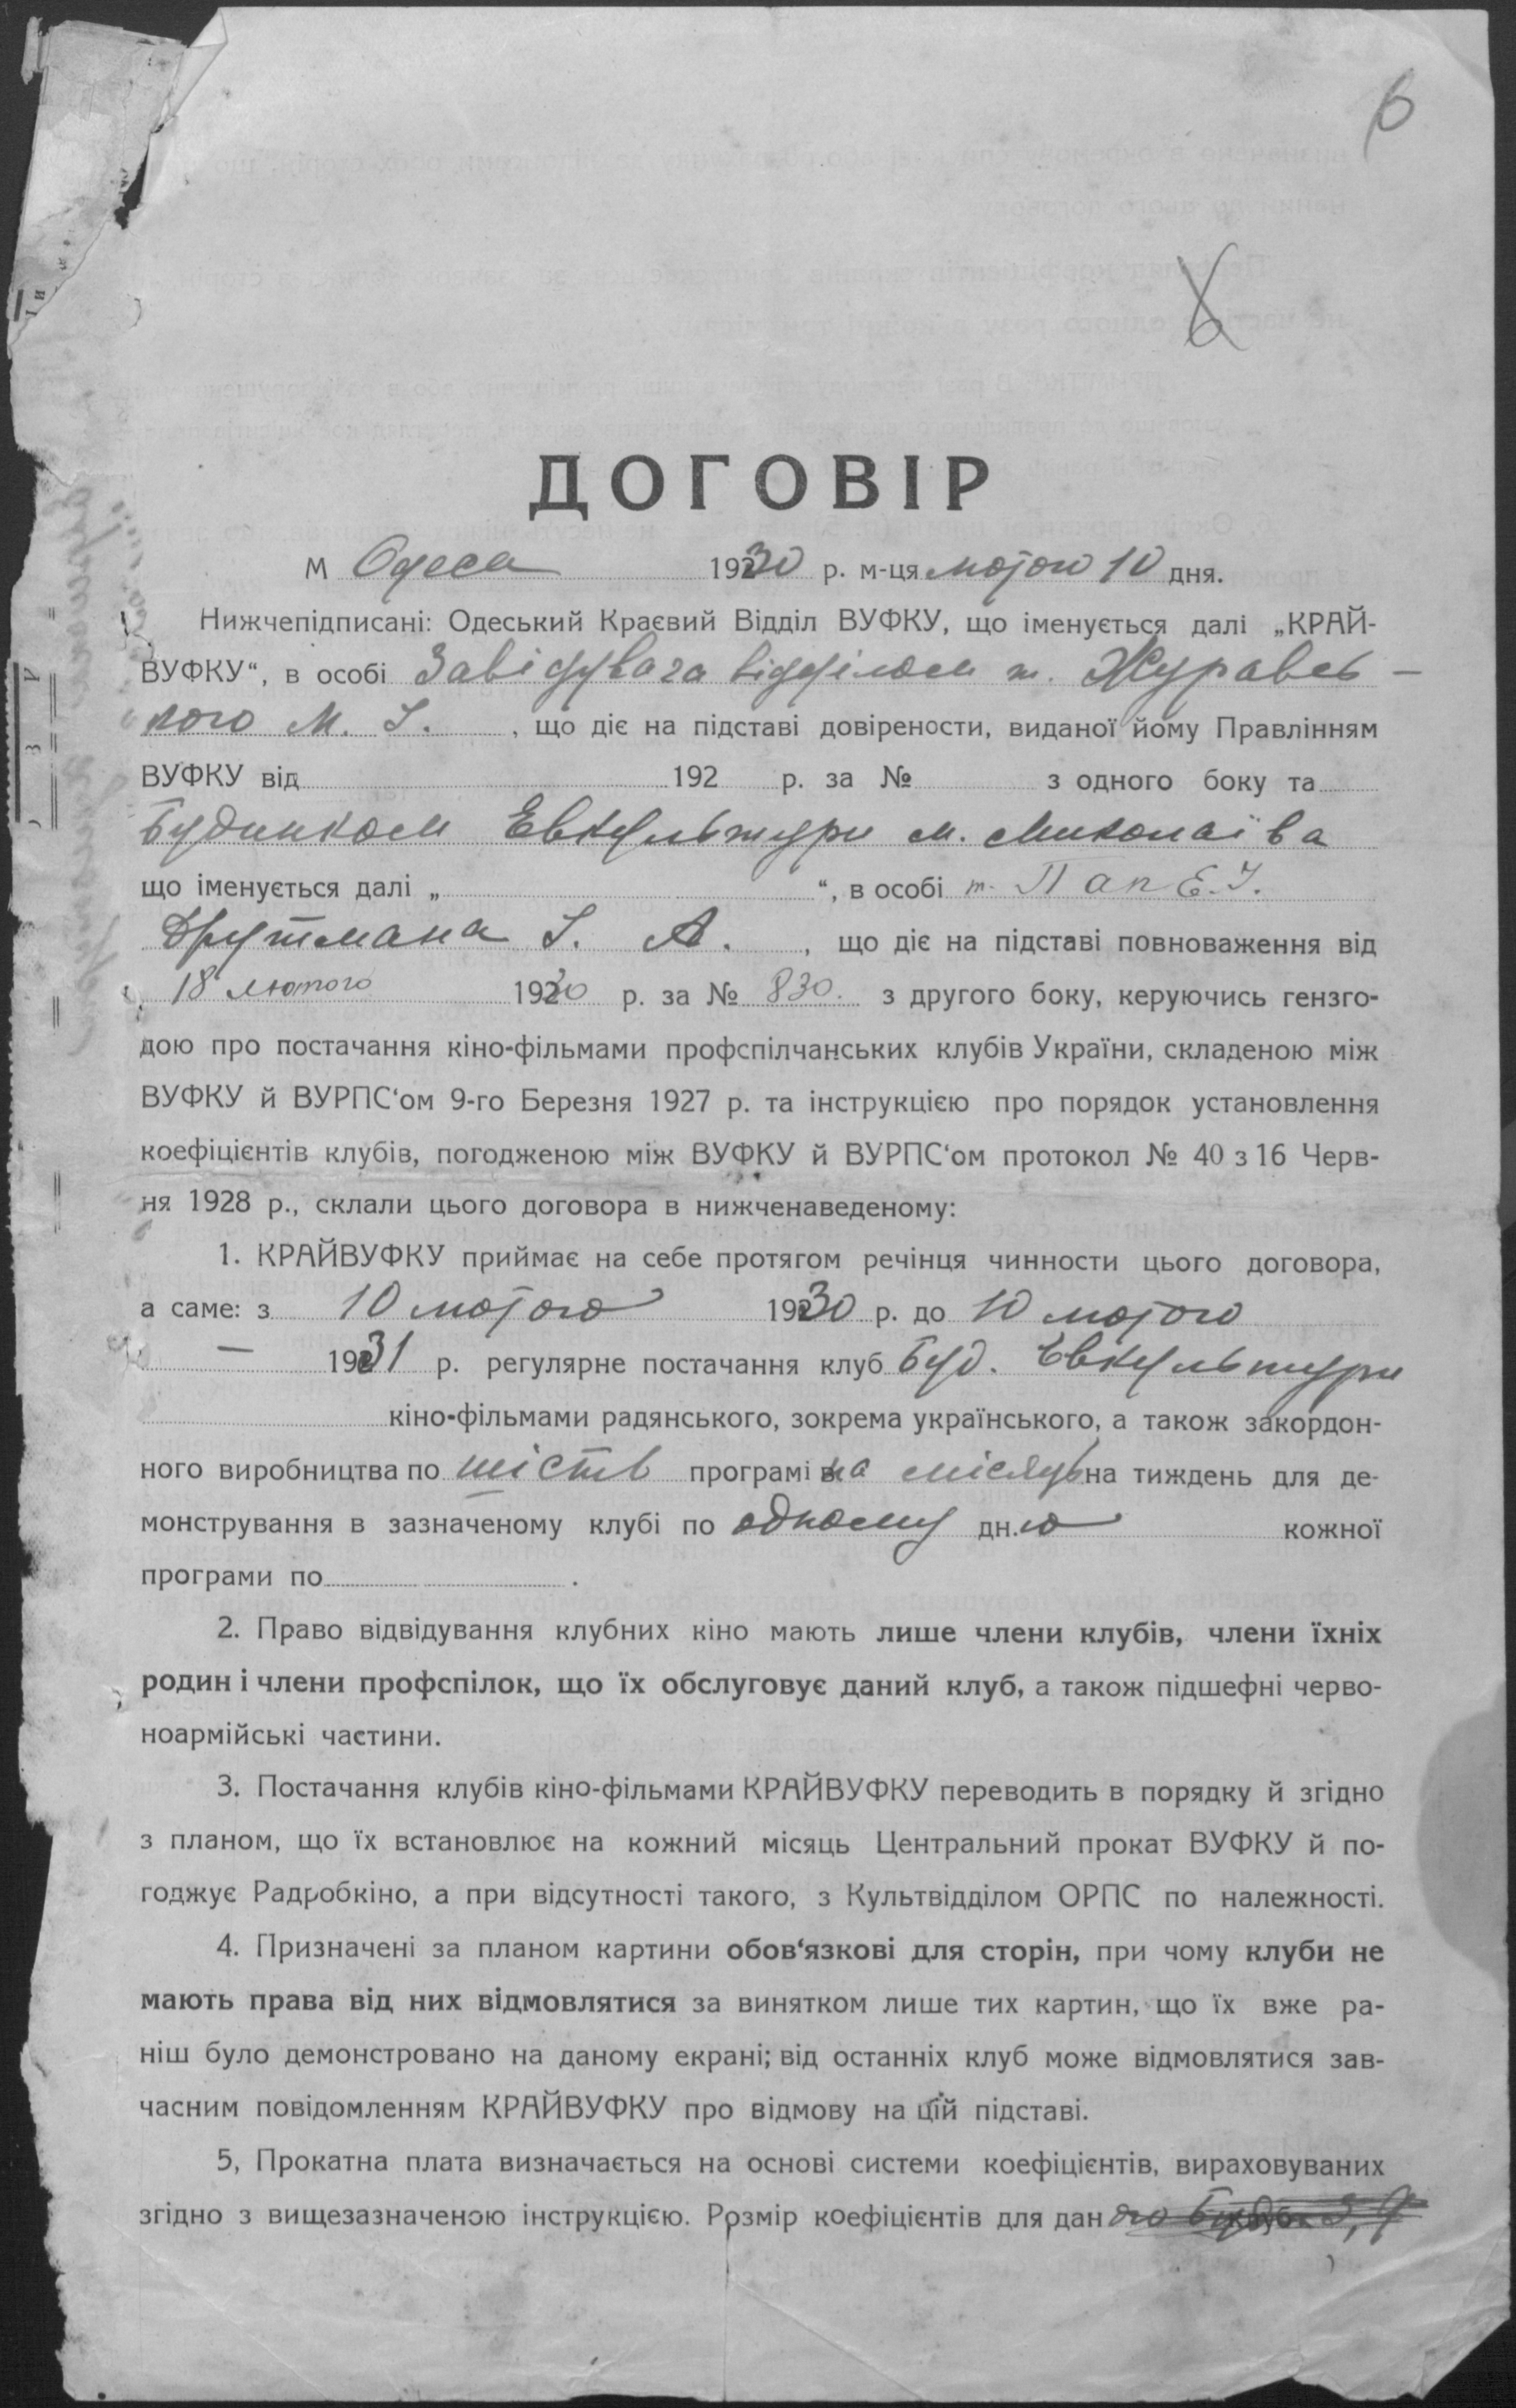 6
6
ДОГОВІР
м Одеса 1930 р. м-ця лютого 10 дня.
Нижчепідписані: Одеський Краєвий Відділ ВУФКУ, що іменується далі „КРАЙ-
ВУФКУ“, в особі Завідувача відділом т. Журавсь-
кого М. І. , що діє на підставі довірености, виданої йому Правлінням
ВУФКУ від 192 р. за № з одного боку та
Будинком Евкультури м. Миколаїва
що іменується далі „ “, в особі т. Пап Е. І.
Друтмана І. А. , що діє на підставі повноваження від
18 лютого 1930 р. за № 830. з другого боку, керуючись гензго-
дою про постачання кіно-фільмами профспілчанських клубів України, складеною між
ВУФКУ й ВУРПС‘ом 9-го Березня 1927 р. та інструкцією про порядок установлення
коефіцієнтів клубів, погодженою між ВУФКУ й ВУРПС‘ом протокол № 40 з 16 Черв-
ня 1928 р., склали цього договора в нижченаведеному:
1. КРАЙВУФКУ приймає на себе протягом речінця чинности цього договора,
а саме: з 10 лютого 1930 р. до 10 лютого
— 1931 р. регулярне постачання клуб Буд. Евкультури
кіно-фільмами радянського, зокрема українського, а також закордон-
ного виробництва по шість програмів на місяць на тиждень для де-
монстрування в зазначеному клубі по одному дн.ю кожної
програми по .
2. Право відвідування клубних кіно мають лише члени клубів, члени їхніх
родин і члени профспілок, що їх обслуговує даний клуб, а також підшефні черво-
ноармійські частини.
3. Постачання клубів кіно-фільмами КРАЙВУФКУ переводить в порядку й згідно
з планом, що їх встановлює на кожний місяць Центральний прокат ВУФКУ й по-
годжує Радробкіно, а при відсутності такого, з Культвідділом ОРПС по належності.
4. Призначені за планом картини обов‘язкові для сторін, при чому клуби не
мають права від них відмовлятися за винятком лише тих картин, що їх вже ра-
ніш було демонстровано на даному екрані; від останніх клуб може відмовлятися зав-
часним повідомленням КРАЙВУФКУ про відмову на цій підставі.
5, Прокатна плата визначається на основі системи коефіцієнтів, вираховуваних
згідно з вищезазначеною інструкцією. Розмір коефіцієнтів для дан ого